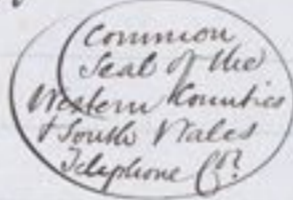 Common
Seal of the
Western Counties
& South Wales
Telephone Co.